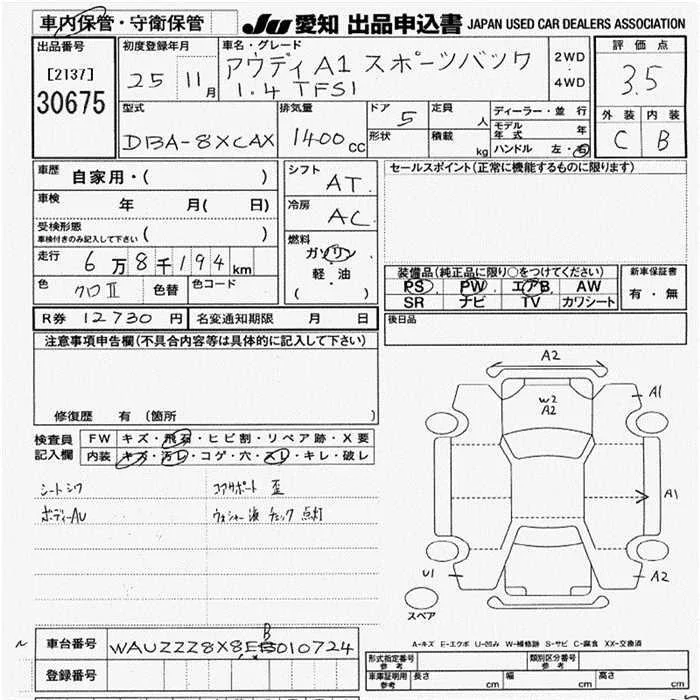 車内保管・守衛保管
JU 愛知 出品申込書 JAPAN USED CAR DEALERS ASSOCIATION
出品番号
[2137]
30675
初度登録年月
25 11月
車名・グレード
アウディA1 スポーツバック
1.4 TFSI
2WD
・
4WD
評価点
3.5
外装 内装
C B
型式
DBA-8XCAX
排気量
1400cc
ドア 5
形状
定員 人
積載 kg
ディーラー・並行
モデル年式 年
ハンドル 左・右
車歴 自家用・( )
車検 年 月( 日)
受検形態
車検付きのみ記入して下さい ( )
走行 6万8千194km
色 クロⅡ 色替 色コード
シフト AT
冷房 AC
燃料
ガソリン
軽・油
( )
セールスポイント(正常に機能するものに限ります)
装備品(純正品に限り○をつけてください)
PS PW エアB AW
SR ナビ TV カワシート
新車保証書
有・無
R券 12730円 名変通知期限 月 日
後日品
注意事項申告欄(不具合内容等は具体的に記入して下さい)
修復歴 有 (箇所 )
検査員
記入欄
FW キズ・飛石・ヒビ割・リペア跡・X要
内装 キズ・汚レ・コゲ・穴・スレ・キレ・破レ
シートシワ コアサポート 歪
ボディーAU ウォシャー液 チェック 点灯
A2
W2
A2
A1
A1
U1
A2
スペア
A-キズ E-エクボ U-凹み W-補修跡 S-サビ C-腐食 XX-交換済
車台番号 WAUZZZ8X8EB010724
B
登録番号
形式指定番号
参考
類別区分番号
参考
車庫証明用
参考
長さ cm 幅 cm 高さ cm